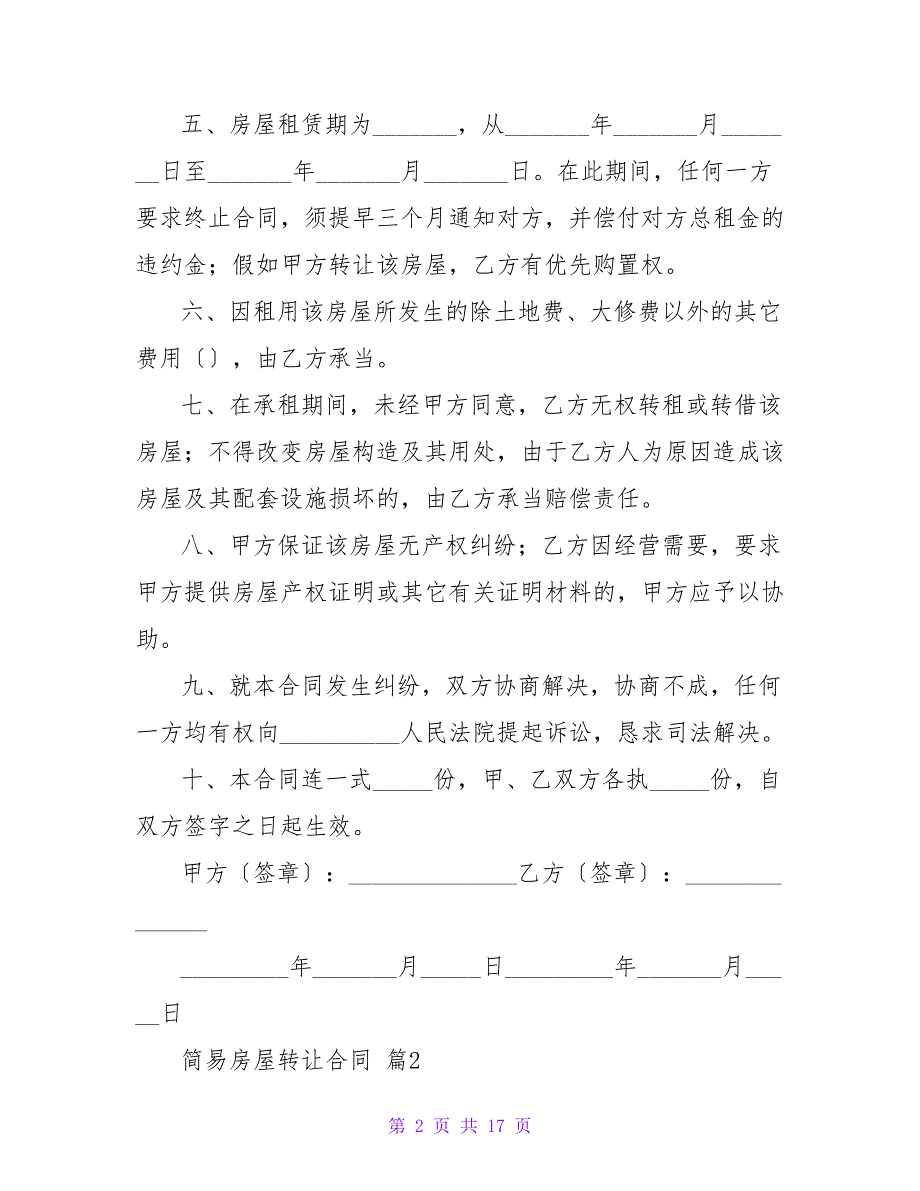 五、房屋租赁期为_______，从_______年_______月_____
__日至_______年_______月_______日。在此期间，任何一方
要求终止合同，须提早三个月通知对方，并偿付对方总租金的
违约金；假如甲方转让该房屋，乙方有优先购置权。
六、因租用该房屋所发生的除土地费、大修费以外的其它
费用〔〕，由乙方承当。
七、在承租期间，未经甲方同意，乙方无权转租或转借该
房屋；不得改变房屋构造及其用处，由于乙方人为原因造成该
房屋及其配套设施损坏的，由乙方承当赔偿责任。
八、甲方保证该房屋无产权纠纷；乙方因经营需要，要求
甲方提供房屋产权证明或其它有关证明材料的，甲方应予以协
助。
九、就本合同发生纠纷，双方协商解决，协商不成，任何
一方均有权向__________人民法院提起诉讼，恳求司法解决。
十、本合同连一式_____份，甲、乙双方各执_____份，自
双方签字之日起生效。
甲方〔签章〕：______________乙方〔签章〕：________
______
_________年_______月_____日_________年_______月___
__日
简易房屋转让合同 篇2
第 2 页 共 17 页